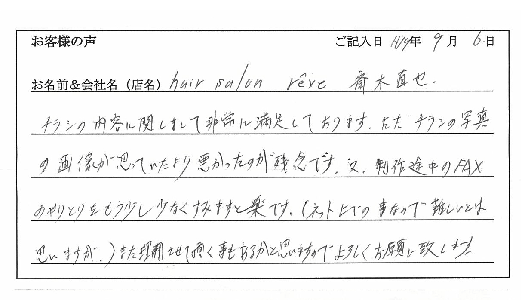 お客様の声 ご記入日 H19年 9月 6日
お名前&会社名（店名） hair salon rêve 斎木直也.
チラシの内容に関しまして非常に満足しております。ただ チラシの写真
の画像が思っていたより悪かったのが残念です。又、制作途中のFAX
のやりとりをもう少し少なくすみますと楽です。（ネット上での事なので難しいとは
思いますが。）また利用させて頂く事もあるかと思いますので よろしくお願い致します。